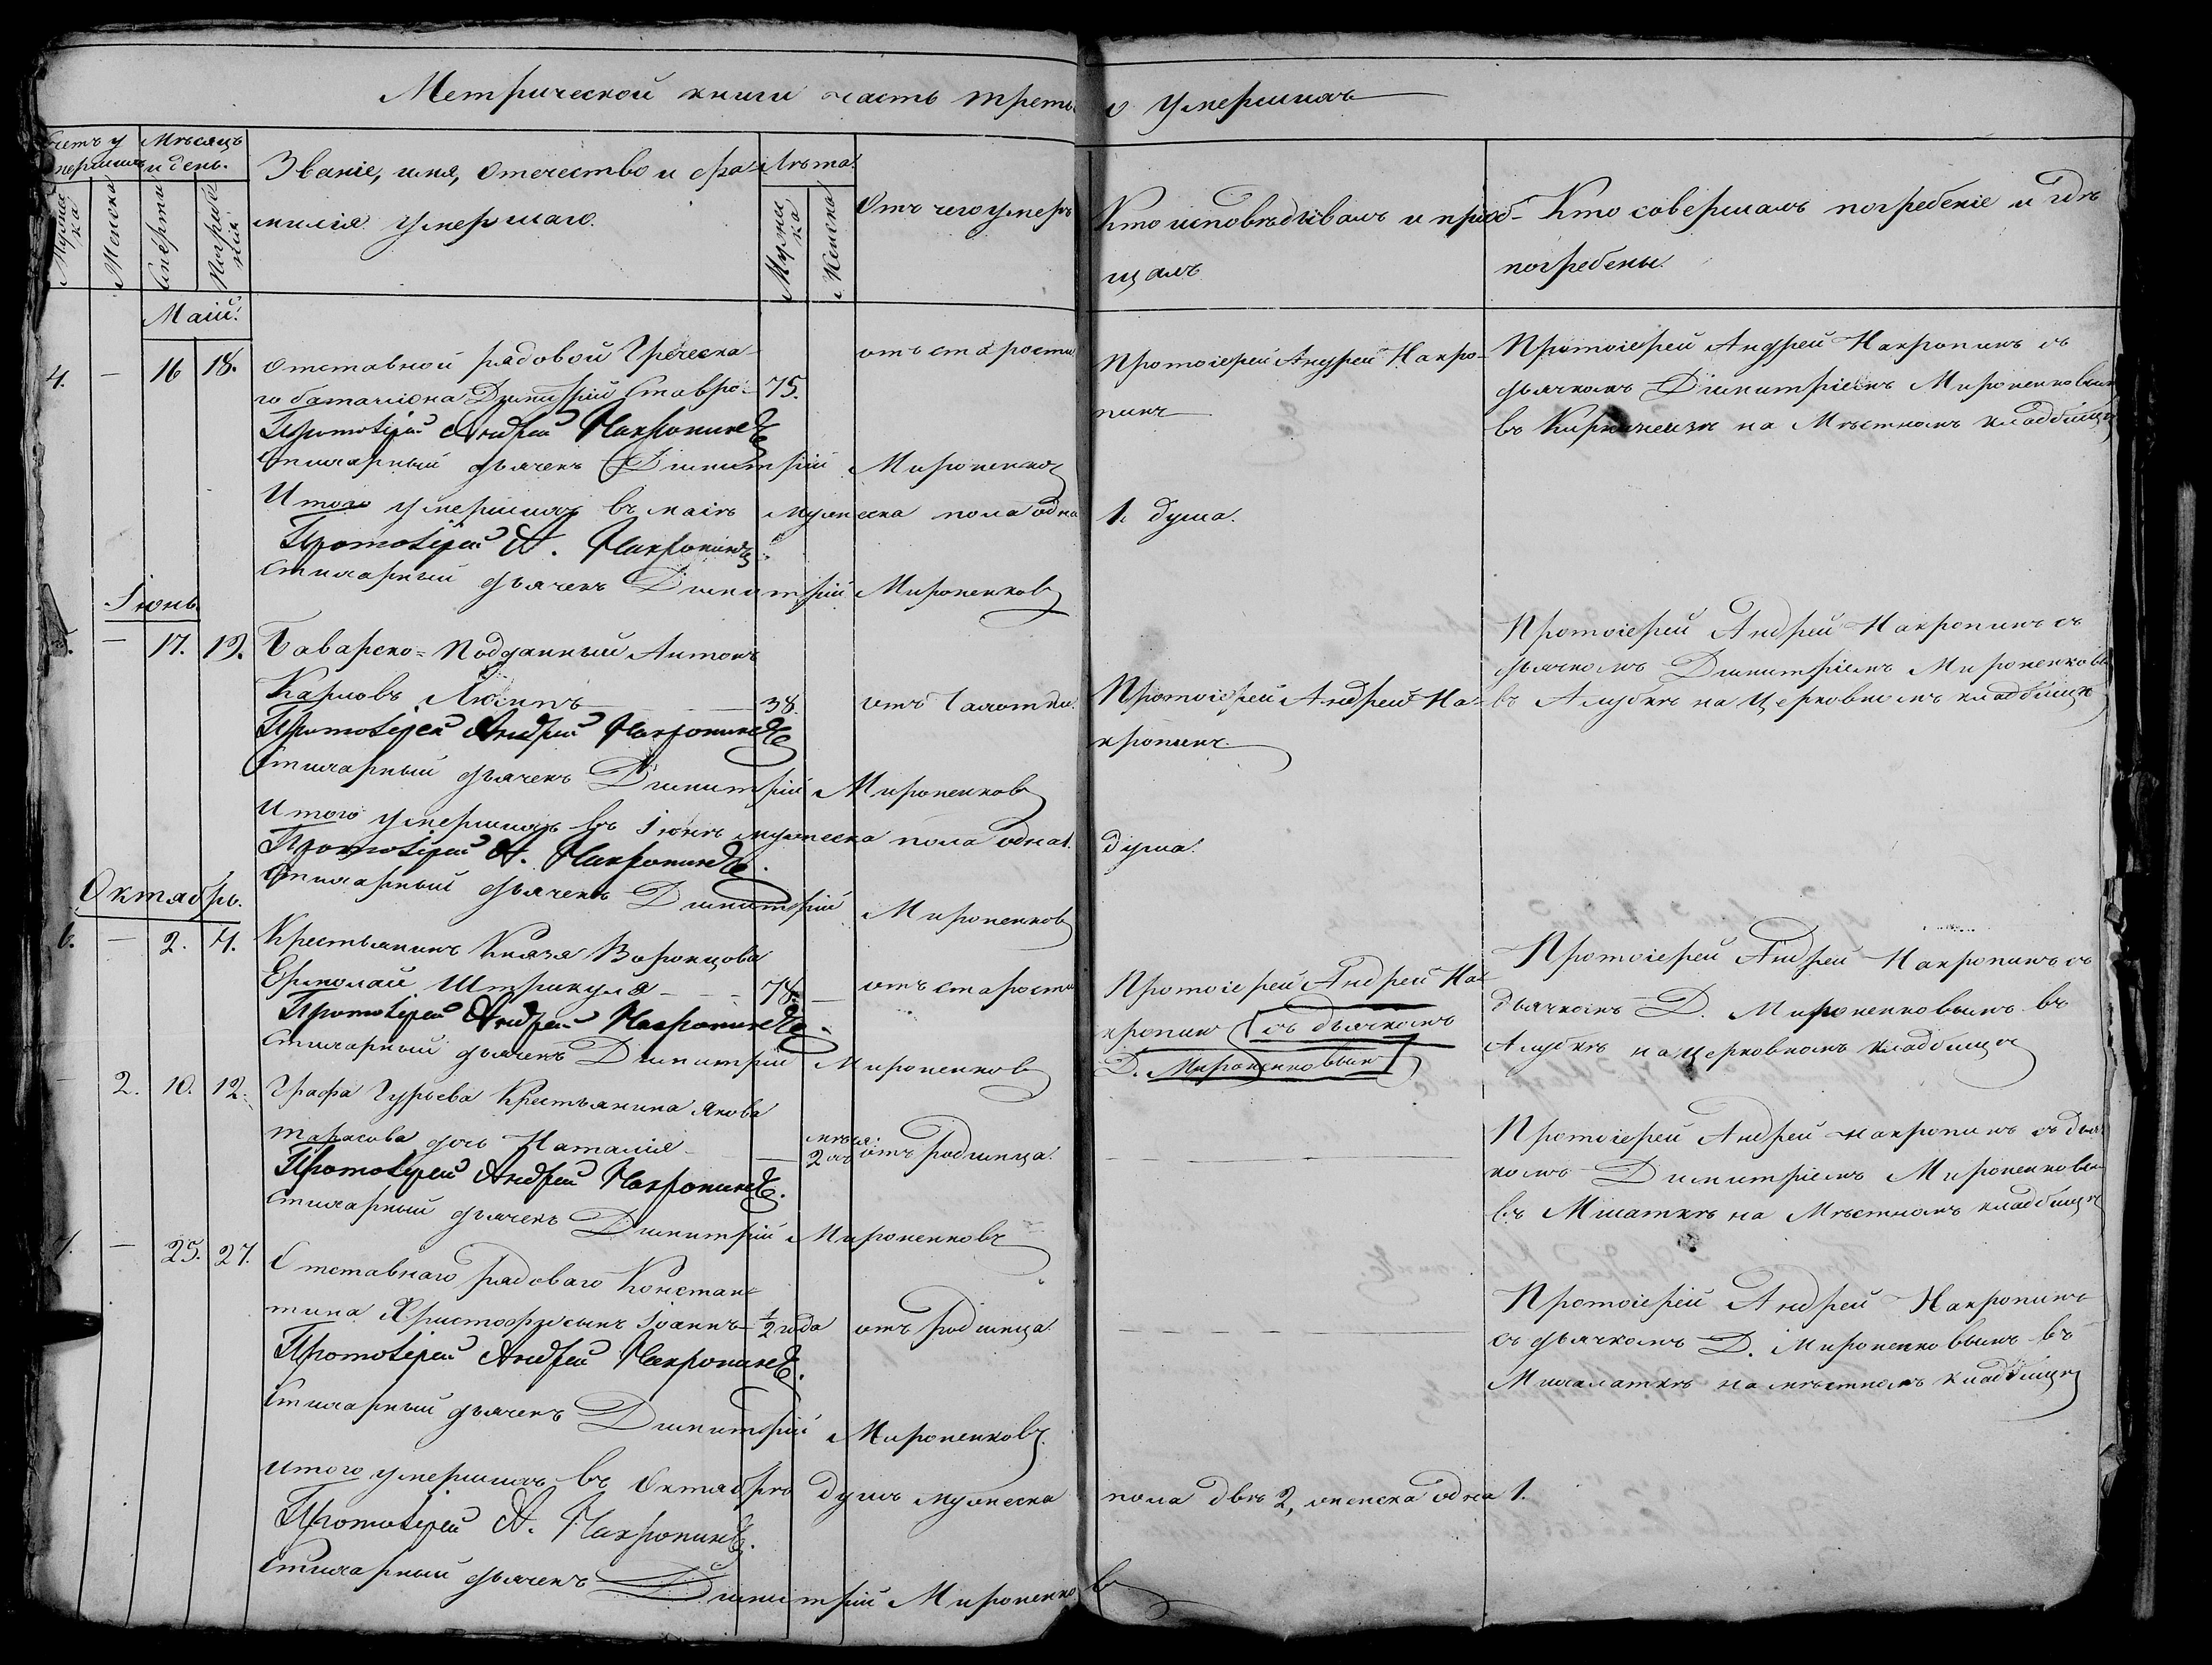 Метрической книги часть третья о умершихъ
Счетъ умершихъ
Мѣсяцъ и день.
Званіе, имя, отечество и фамилія умершаго.
Лѣта.
Отъ чего умеръ
Кто исповѣдывалъ и пріобщалъ
Кто совершалъ погребеніе и гдѣ погребены.
Мужеска
Женска
Смерти
Погребенія
Мужеска
Женска
Маій.
4. — 16 18.
Отставной рядовой Греческа-
го баталіона Димитрій Ставро-
75.
отъ старости
Протоіерей Андрей Накро-
пинъ
Протоіерей Андрей Накропинъ съ
дьячкомъ Димитріемъ Мироненковым
въ на Мѣстномъ кладбищѣ
Протоіерей Андрей Накропинъ
Стихарный дьячекъ Димитрій Мироненков
Итого умершихъ въ маіѣ мужеска пола одна 1. душа.
Протоіерей А. Накропинъ.
Стихарный дьячекъ Димитрій Мироненковъ
Іюнь
5. — 17. 19.
Баварско=Подданный Антонъ
Карловъ
38.
отъ
Протоіерей Андрей На-
кропинъ.
Протоіерей Андрей Накропинъ съ
дьячкомъ Димитріемъ Мироненковы
въ Алупкѣ на Церковномъ кладбищѣ
Протоіерей Андрей Накропинъ
Стихарный дьячекъ Димитрій Мироненковъ
Итого умершихъ въ Іюнѣ мужеска пола одна 1. душа.
Протоіерей А. Накропинъ.
Стихарный дьячекъ Димитрій Мироненковъ
Октябрь.
6. — 2. 4.
Крестьянинъ Князя Воронцова
Ермолай Штрикуля
78.
отъ старости
Протоіерей Андрей На-
кропинъ [съ дьячкомъ
Д. Мироненковым]
Протоіерей Андрей Накропинъ съ
дьячкомъ Д. Мироненковымъ въ
Алупкѣ на церковномъ кладбищѣ
Протоіерей Андрей Накропинъ.
Стихарный дьячекъ Димитрій Мироненковъ
— 2. 10. 12.
Графа Гурьева Крестьянина Якова
Тарасова дочь Наталія
2 мѣся:
отъ Родимца.
Протоіерей Андрей Накропинъ съ дьяч
комъ Димитріемъ Мироненковы
въ Мшаткѣ на Мѣстномъ кладбищѣ
Протоіерей Андрей Накропинъ.
Стихарный дьячекъ Димитрій Мироненковъ
7. — 25. 27.
Отставнаго рядоваго Констан-
тина Христофу сынъ Іоаннъ
½ года
отъ Родимца.
Протоіерей Андрей Накропинъ
съ дьячкомъ Д. Мироненковымъ въ
Мухалаткѣ на мѣстномъ кладбищѣ
Протоіерей Андрей Накропинъ.
Стихарный дьячекъ Димитрій Мироненковъ.
Итого умершихъ въ Октябрѣ душъ мужеска пола двѣ 2, женска одна 1.
Протоіерей А. Накропинъ.
Стихарный дьячекъ Димитрій Мироненковъ